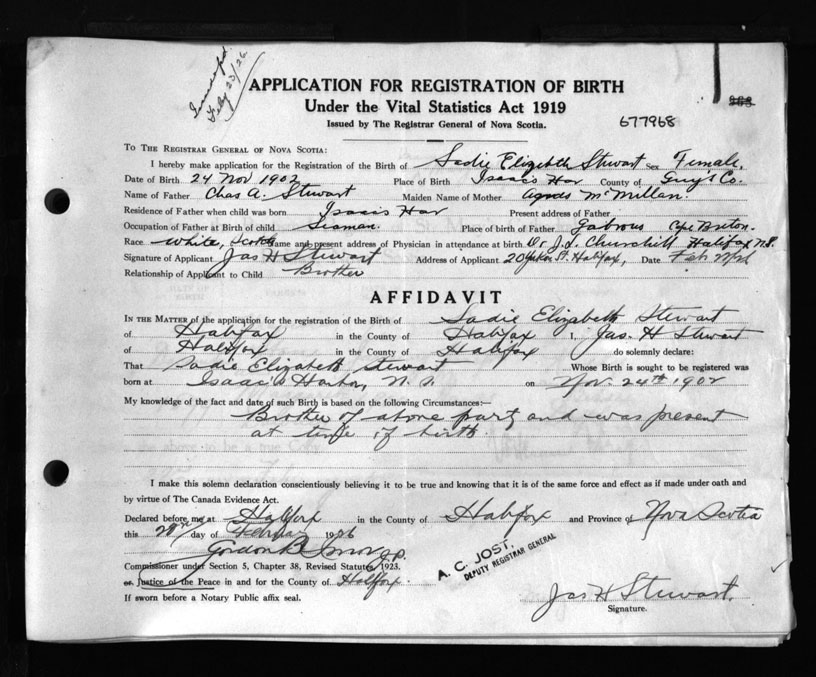 Feby 23/26
APPLICATION FOR REGISTRATION OF BIRTH
Under the Vital Statistics Act 1919
Issued by The Registrar General of Nova Scotia.
677968
TO THE REGISTRAR GENERAL OF NOVA SCOTIA:
I hereby make application for the Registration of the Birth of Sadie Elizabeth Stewart Sex Female.
Date of Birth 24 Nov 1902 Place of Birth Isaacs Har County of Guy's Co.
Name of Father Chas A. Stewart Maiden Name of Mother Agnes McMillan.
Residence of Father when child was born Isaacs Har Present address of Father
Occupation of Father at Birth of child Seaman Place of birth of Father Gabrous Cpe Breton.
Race White, Scotch Name and present address of Physician in attendance at birth Dr J.L. Churchill Halifax N.S.
Signature of Applicant Jas H Stewart Address of Applicant 20 Yukon St. Halifax, Date Feb
Relationship of Applicant to Child Brother
AFFIDAVIT
IN THE MATTER of the application for the registration of the Birth of Sadie Elizabeth Stewart
of Halifax in the County of Halifax I, Jas. H Stewart
of Halifax in the County of Halifax do solemnly declare:
That Sadie Elizabeth Stewart Whose Birth is sought to be registered was
born at Isaac's Harbor, N. S. on Nov. 24th 1902
My knowledge of the fact and date of such Birth is based on the following Circumstances:—
Brother of above party and was present
at time of birth.
I make this solemn declaration conscientiously believing it to be true and knowing that it is of the same force and effect as if made under oath and
by virtue of The Canada Evidence Act.
Declared before me at Halifax in the County of Halifax and Province of Nova Scotia
this 22nd day of February 1926
Gordon B
Commissioner under Section 5, Chapter 38, Revised Statutes, 1923.
or Justice of the Peace in and for the County of Halifax.
If sworn before a Notary Public affix seal.
A. C. JOST,
DEPUTY REGISTRAR GENERAL
Jas H Stewart.
Signature.